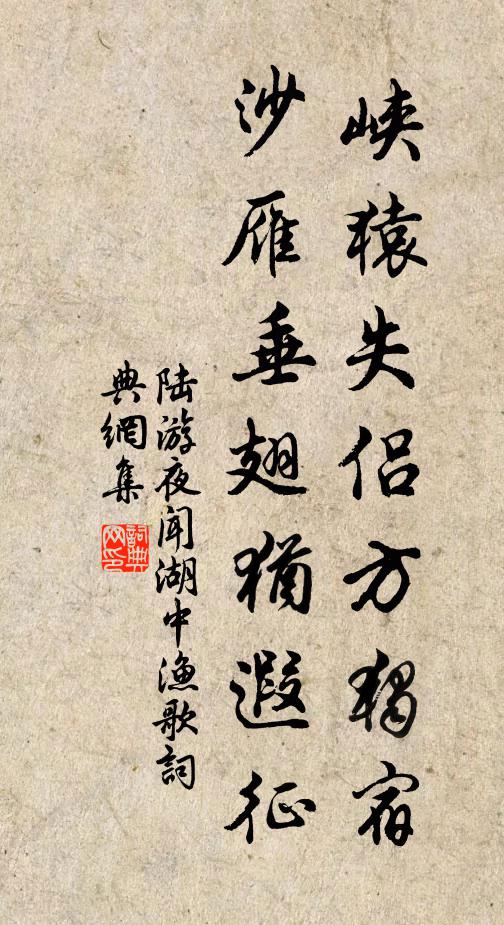 峡猿失侣方独宿
沙雁垂翅犹遐征
陆游夜闻湖中渔歌词
典網集
詞典網印